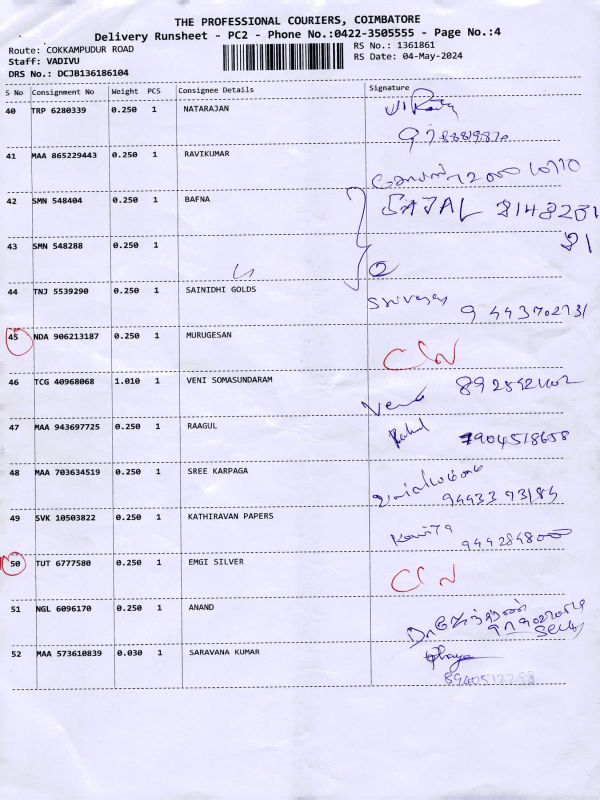 THE PROFESSIONAL COURIERS, COIMBATORE
Delivery Runsheet - PC2 - Phone No.:0422-3505555 - Page No.:4
Route: COKKAMPUDUR ROAD
RS No.: 1361861
Staff: VADIVU
RS Date: 04-May-2024
DRS No.: DCJB136186104
S No Consignment No Weight PCS Consignee Details Signature
40 TRP 6280339 0.250 1 NATARAJAN
41 MAA 865229443 0.250 1 RAVIKUMAR
42 SMN 548404 0.250 1 BAFNA SAJAL 8148231
81
43 SMN 548288 0.250 1
2
44 TNJ 5539290 0.250 1 SAINIDHI GOLDS
9443702731
45 NDA 906213187 0.250 1 MURUGESAN
46 TCG 40968068 1.010 1 VENI SOMASUNDARAM
47 MAA 943697725 0.250 1 RAAGUL Rahul 7904518658
48 MAA 703634519 0.250 1 SREE KARPAGA
9443373184
49 SVK 10503822 0.250 1 KATHIRAVAN PAPERS
9442848000
50 TUT 6777580 0.250 1 EMGI SILVER
51 NGL 6096170 0.250 1 ANAND
52 MAA 573610839 0.030 1 SARAVANA KUMAR
8940512298